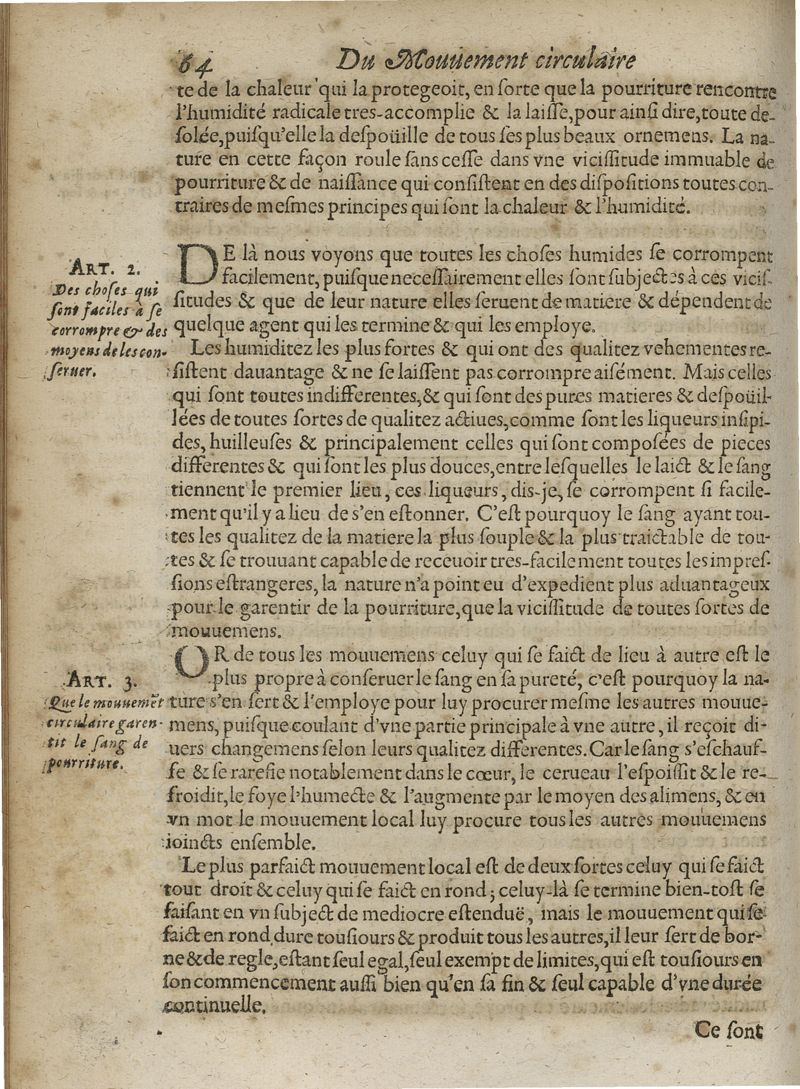 64 Du Mouuement circulaire
te de la chaleur qui la protegeoit, en ſorte que la pourriture rencontre
l'humidité radicale tres-accomplie & la laiſſe, pour ainſi dire, toute de-
ſolée, puiſqu'elle la deſpoüille de tous ſes plus beaux ornemens. La na-
ture en cette façon roule ſans ceſſe dans vne viciſſitude immuable de
pourriture & de naiſſance qui conſiſtent en des diſpoſitions toutes con-
traires de meſmes principes qui ſont la chaleur & l'humidité.
ART. 2.
Des choſes qui
ſont faciles à ſe
corrompre & des
moyens de les con-
ſeruer.
DE là nous voyons que toutes les choſes humides ſe corrompent
facilement, puiſque neceſſairement elles ſont ſubjectes à ces viciſ-
ſitudes & que de leur nature elles ſeruent de matiere & dépendent de
quelque agent qui les termine & qui les employe.
Les humiditez les plus fortes & qui ont des qualitez vehementes re-
ſiſtent dauantage & ne ſe laiſſent pas corrompre aiſément. Mais celles
qui ſont toutes indifferentes, & qui ſont des pures matieres & deſpoüil-
lées de toutes ſortes de qualitez actiues, comme ſont les liqueurs inſipi-
des, huilleuſes & principalement celles qui ſont compoſées de pieces
differentes & qui ſont les plus douces, entre leſquelles le laict & le ſang
tiennent le premier lieu, ces liqueurs, dis-je, ſe corrompent ſi facile-
ment qu'il y a lieu de s'en eſtonner. C'eſt pourquoy le ſang ayant tou-
tes les qualitez de la matiere la plus ſouple & la plus traictable de tou-
tes & ſe trouuant capable de receuoir tres-facilement toutes les impreſ-
ſions eſtrangeres, la nature n'a point eu d'expedient plus aduantageux
pour le garentir de la pourriture, que la viciſſitude de toutes ſortes de
mouuemens.
ART. 3.
Que le mouuemēt
circulaire garen-
tit le ſang de
pourriture.
OR de tous les mouuemens celuy qui ſe faict de lieu à autre eſt le
plus propre à conſeruer le ſang en ſa pureté, c'eſt pourquoy la na-
ture s'en ſert & l'employe pour luy procurer meſme les autres mouue-
mens, puiſque coulant d'vne partie principale à vne autre, il reçoit di-
uers changemens ſelon leurs qualitez differentes. Car le ſang s'eſchauf-
fe & ſe rarefie notablement dans le cœur, le cerueau l'eſpoiſſit & le re-
froidit, le foye l'humecte & l'augmente par le moyen des alimens, & en
vn mot le mouuement local luy procure tous les autres mouuemens
ioincts enſemble.
Le plus parfaict mouuement local eſt de deux ſortes celuy qui ſe faict
tout droit & celuy qui ſe faict en rond; celuy-là ſe termine bien-toſt ſe
faiſant en vn ſubject de mediocre eſtenduë, mais le mouuement qui ſe
faict en rond dure touſiours & produit tous les autres, il leur ſert de bor-
ne & de regle, eſtant ſeul egal, ſeul exempt de limites, qui eſt touſiours en
ſon commencement auſſi bien qu'en ſa fin & ſeul capable d'vne durée
continuelle.
Ce ſont